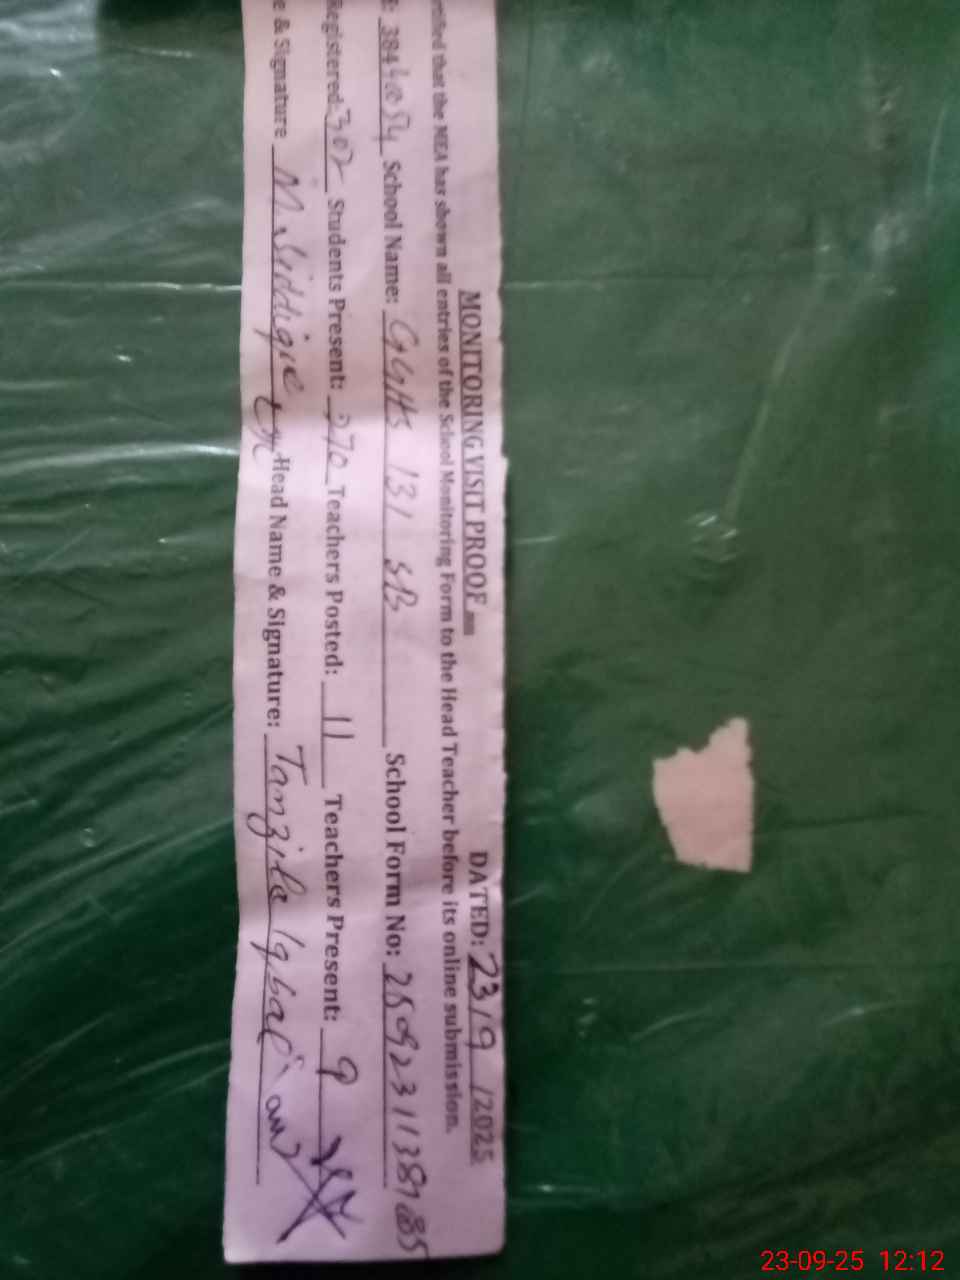 MONITORING VISIT PROOF DATED: 23/9/2025
that the MEA has shown all entries of the School Monitoring Form to the Head Teacher before its online submission.
38440054 School Name: GGHS 131 SB School Form No: 2509231138
Registered: 302 Students Present: 270 Teachers Posted: 11 Teachers Present: 9
& Signature M. Siddique Head Name & Signature: Tanzila Iqbal
23-09-25 12:12